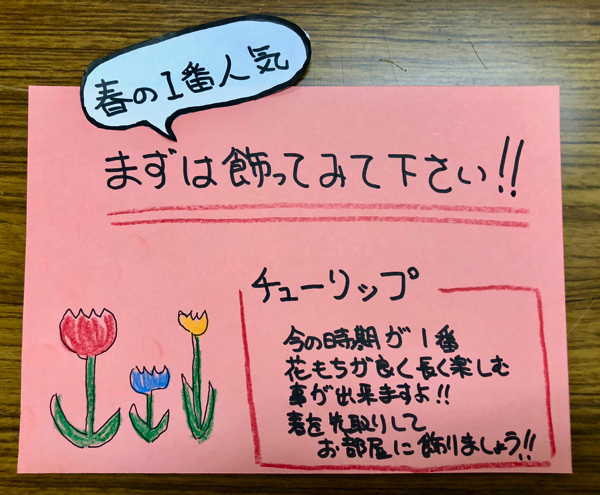 春の1番人気
まずは飾ってみて下さい!!
チューリップ
今の時期が1番
花もちが良く長く楽しむ
事が出来ますよ!!
春を先取りして
お部屋に飾りましょう!!